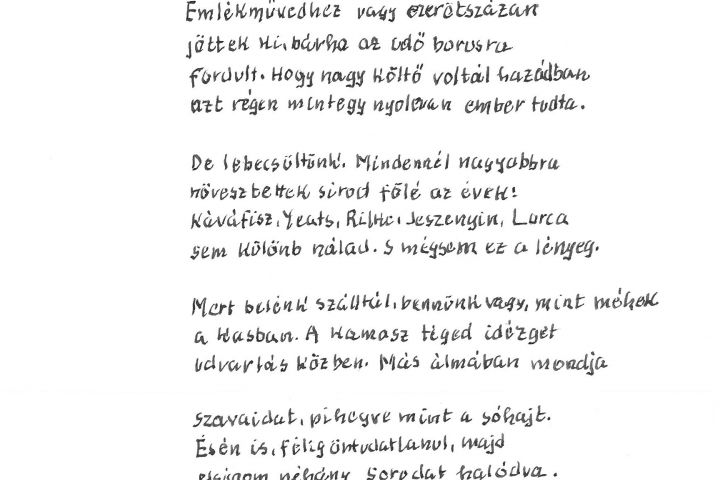 Emlékművedhez vagy ezerötszázan
jöttek ki, bárha az idő borusra
fordult. Hogy nagy költő voltál hazádban
azt régen mintegy nyolcvan ember tudta.
De lebecsültünk. Mindennél nagyobbra
növesztettek sirod fölé az évek:
Kaváfisz, Yeats, Rilke, Jeszenyin, Lorca
sem különb nálad. S mégsem ez a lényeg.
Mert belénk szálltál, bennünk vagy, mint méhek
a kasban. A kamasz téged idézget
udvarlás közben. Más álmában mondja
szavaidat, pihegve mint a sóhajt.
És én is, félig öntudatlanul, majd
elsúgom néhány sorodat halódva.